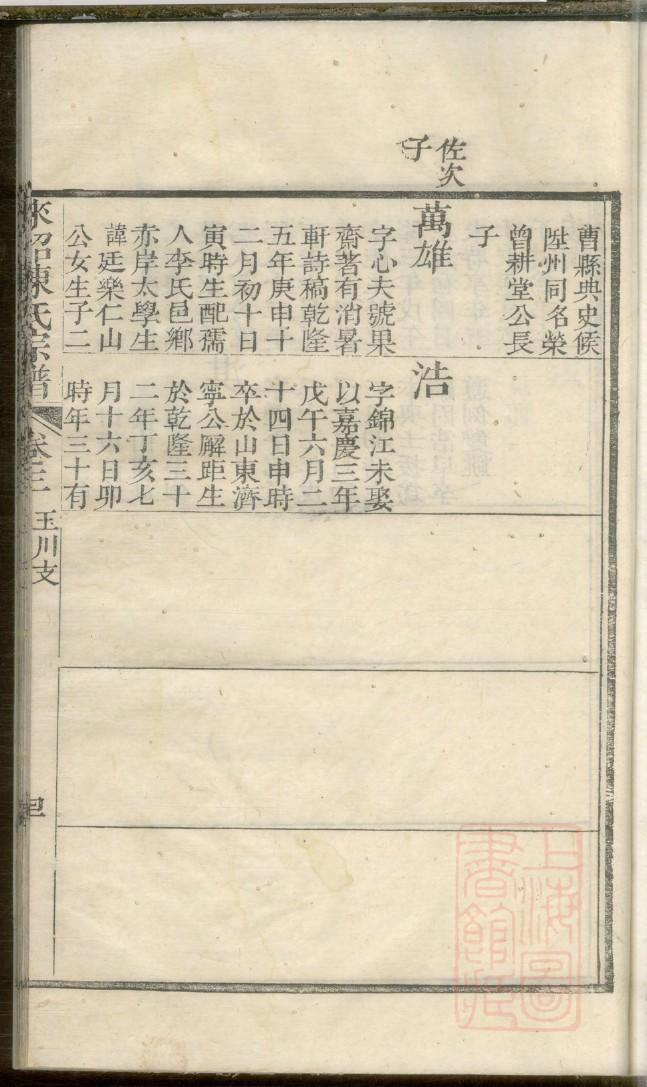 曹縣典史候
陞州同名榮
曾耕堂公長
子
佐次
子
萬雄
字心夫號果
齋著有消暑
軒詩稿乾隆
五年庚申十
二月初十日
寅時生配孺
人李氏邑鄉
赤岸太學生
諱廷樂仁山
公女生子二
浩
字錦江未娶
以嘉慶三年
戊午六月二
十四日申時
卒於山東濟
寧公廨距生
於乾隆三十
二年丁亥七
月十六日卯
時年三十有
陳氏宗譜
卷三
玉川支
上海圖
書館藏